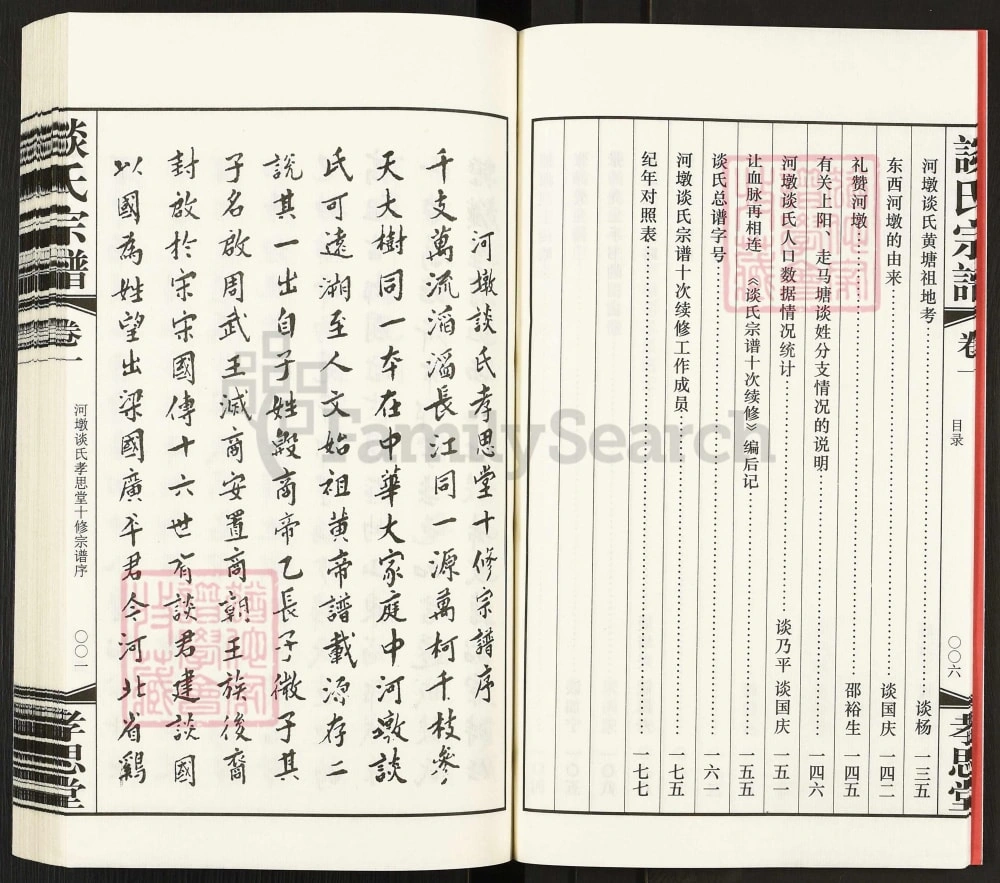 谈氏宗谱
卷一
目录
〇〇六
孝思堂
河墩谈氏黄塘祖地考……谈杨 一三五
东西河墩的由来……谈国庆 一四二
礼赞河墩……邵裕生 一四五
有关上阳、走马塘谈姓分支情况的说明……一四六
河墩谈氏人口数据情况统计……谈乃平 谈国庆 一五一
让血脉再相连《谈氏宗谱十次续修》编后记……一五五
谈氏总谱字号……一六一
河墩谈氏宗谱十次续修工作成员……一七五
纪年对照表……一七七
河墩談氏孝思堂十修宗譜序
千支萬流滔滔長江同一源萬柯千枝參
天大樹同一本在中華大家庭中河墩談
氏可遠溯至人文始祖黄帝譜載源存二
説其一出自子姓殷商帝乙長子微子其
子名啟周武王滅商安置商朝王族後裔
封啟於宋宋國傳十六世有談君建談國
以國為姓望出梁國廣平君今河北省鷄
谈氏宗谱
卷一
河墩谈氏孝思堂十修宗谱序
〇〇一
孝思堂
FamilySearch